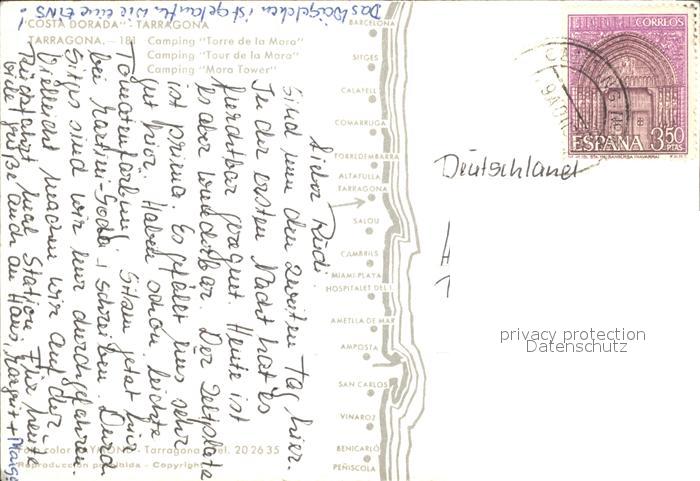 "COSTA DORADA" - TARRAGONA
TARRAGONA. – 181 Camping "Torre de la Mora"
Camping "Tour de la Mora"
Camping "Mora Tower"
Das Vögelchen ist gelandet. Wie eine EINS!
Lieber Rudi.
Sind nun den zweiten Tag hier.
In der ersten Nacht hat es
furchtbar geregnet. Heute ist
es aber wunderbar. Der Zeltplatz
ist prima. Es gefällt uns sehr
gut hier. Haben schon leichte
Tomatenfarben. Sitzen jetzt hier
bei Martini-Soda + schreiben. Durch
Sitges sind wir nur durchgefahren.
Vielleicht machen wir auf der
Rückfahrt hier Station. Für heute
viele Grüße auch an Hans, Margrit +
BARCELONA
SITGES
CALAFELL
COMARRUGA
TORREDEMBARRA
ALTAFULLA
TARRAGONA
SALOU
CAMBRILS
MIAMI-PLAYA
HOSPITALET DEL I.
AMETLLA DE MAR
AMPOSTA
SAN CARLOS
VINAROZ
BENICARLÓ
PEÑISCOLA
CORREOS
ESPAÑA 3,50
PTAS
Deutschland
privacy protection
Datenschutz
color RAYMOND - Tarragona Tel. 20 26 35
Reproducción prohibida - Copyright